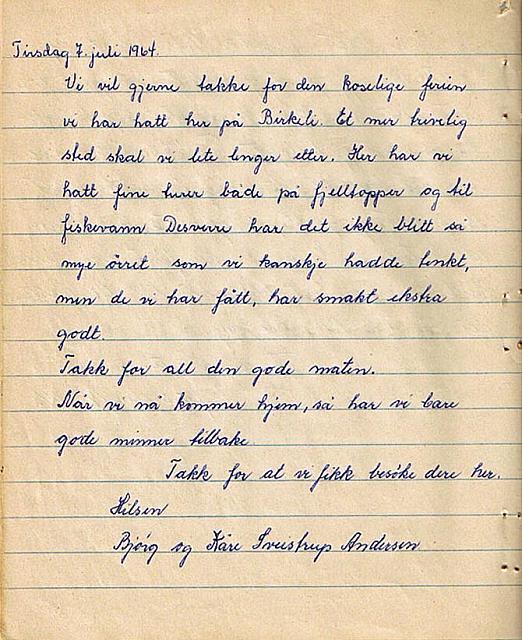 Tirsdag 7. juli 1964.
Vi vil gjerne takke for den koselige ferien
vi har hatt her på Birkeli. Et mer trivelig
sted skal vi lete lenger etter. Her har vi
hatt fine turer både på fjelltopper og til
fiskevann Desverre har det ikke blitt så
mye örret som vi kanskje hadde tenkt,
men de vi har fått, har smakt ekstra
godt.
Takk for all den gode maten.
Når vi nå kommer hjem, så har vi bare
gode minner tilbake.
Takk for at vi fikk besöke dere her.
Hilsen
Bjórg og Kåre Sveistrup Andersen